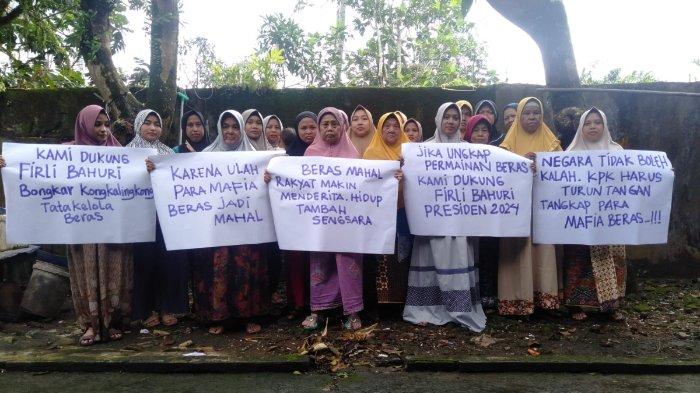 KAMI DUKUNG
FIRLI BAHURI
Bongkar Kongkalingkong
Tata kelola
Beras
KARENA ULAH
PARA MAFIA
BERAS JADI
MAHAL
BERAS MAHAL
RAKYAT MAKIN
MENDERITA. HIDUP
TAMBAH
SENGSARA
JIKA UNGKAP
PERMAINAN BERAS
KAMI DUKUNG
FIRLI BAHURI
PRESIDEN 2024
NEGARA TIDAK BOLEH
KALAH. KPK HARUS
TURUN TANGAN
TANGKAP PARA
MAFIA BERAS...!!!